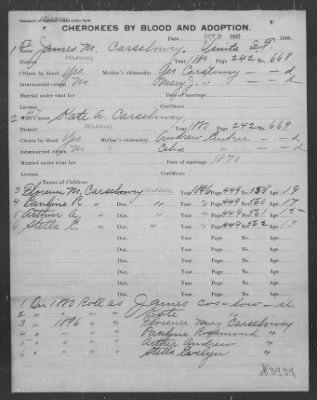 DELAWARE
CHEROKEES BY BLOOD AND ADOPTION.
OCT 3 1900 1900.
1 James M. Carselowey. Vinita I.T.
District DELAWARE Year 1880 Page 242 No. 668
Citizen by blood Yes Mother's citizenship
Intermarried citizen No Mary J. " — — d
Married under what law Date of marriage
License Certificate
2 Kate A. Carselowey.
District DELAWARE Year 1880 Page 242 No. 669
Citizen by blood Yes Mother's citizenship Andrew — — d
Intermarried citizen No Celia — — d
Married under what law Date of marriage 1870
License Certificate
Names of Children:
3 Florence M. Carselowey Dist. DELAWARE Year 1896 Page 449 No. Age 19
4 Pauline R. " Dist. " Year " Page 449 No. 560 Age 17
5 Arthur A. " Dist. " Year " Page 449 No. 561 Age 15
6 Stella E. " Dist. " Year " Page 449 No. 562 Age 13
Dist. Year Page No. Age
Dist. Year Page No. Age
Dist. Year Page No. Age
Dist. Year Page No. Age
Dist. Year Page No. Age
1 On 1880 Roll as James cos-low-ie
2 " " " " Kate "
3 " 1896 " " Florence May Carselowey
4 " " " " Pauline Rosamond "
5 " " " " Arthur Andrew "
6 " " " " Stella Evelyn "
#3939